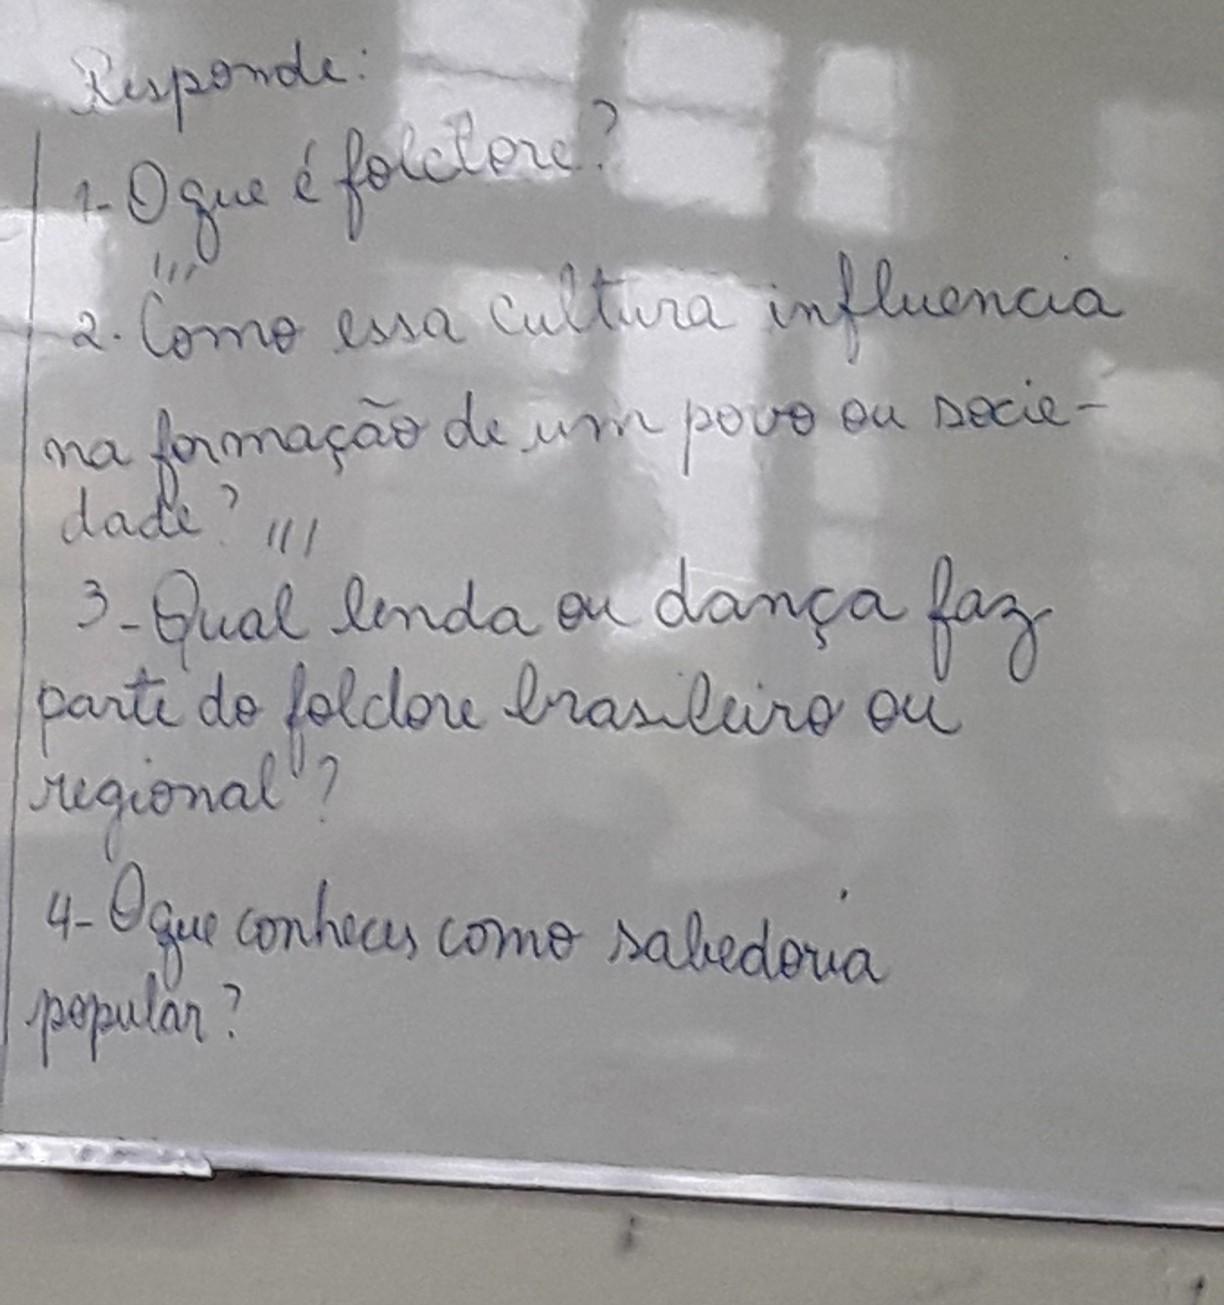 Responde:
1- O que é folclore?
///
2. Como essa cultura influencia
na formação de um povo ou socie-
dade? ///
3- Qual lenda ou dança faz
parte do folclore brasileiro ou
regional"?
4- O que conheces como sabedoria
popular?